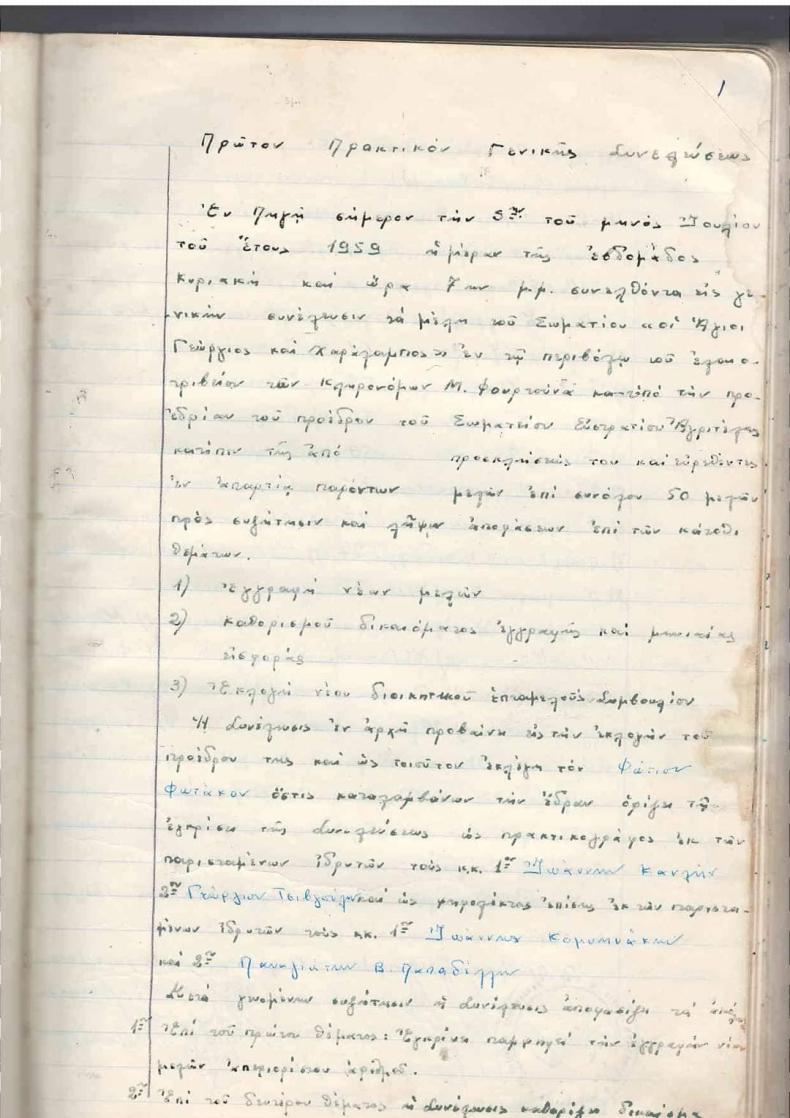 1
Πρῶτον Πρακτικόν Γενικῆς Συνελεύσεως
Ἐν Πηγῇ σήμερον τήν 5ην τοῦ μηνός Ἰουλίου
τοῦ ἔτους 1959 ἡμέραν τῆς ἑβδομάδος
Κυριακή καί ὥρα 7ην μ.μ. συνελθόντα εἰς γε-
νικήν συνέλευσιν τά μέλη τοῦ Σωματίου «οἱ Ἅγιοι
Γεώργιος καί Χαράλαμπος» ἐν τῷ περιβόλῳ τοῦ ἐλαιο-
τριβείου τῶν κληρονόμων Μ. Φουρτούνα καί ὑπό τήν προ-
εδρίαν τοῦ προέδρου τοῦ Σωματείου Εὐστρατίου
κατόπιν τῆς ἀπό προσκλήσεώς του καί εὑρεθέντες
ἐν ἀπαρτίᾳ παρόντων μελῶν ἐπί συνόλου 50 μελῶν
πρός συζήτησιν καί λῆψιν ἀποφάσεων ἐπί τῶν κάτωθι
θεμάτων.
1) Ἐγγραφή νέων μελῶν
2) Καθορισμοῦ δικαιόματος ἐγγραφῆς καί μηνιαίας
εἰσφορᾶς
3) Ἐκλογή νέου διοικητικοῦ ἑπταμελοῦς Συμβουλίου
Ἡ Συνέλευσις ἐν ἀρχῇ προβαίνει εἰς τήν ἐκλογήν τοῦ
προέδρου της καί ὡς τοιοῦτον ἐκλέγει τόν Φώτιον
Φωτάκον ὅστις καταλαμβάνων τήν ἕδραν ὁρίζει τῇ
ἐγκρίσει τῆς Συνελεύσεως ὡς πρακτικογράφος ἐκ τῶν
παρισταμένων ἱδρυτῶν τούς κ.κ. 1ον Ἰωάννην
2ον Γεώργιον καί ὡς ψηφολέκτας ἐπίσης ἐκ τῶν παριστα-
μένων ἱδρυτῶν τούς κ.κ. 1ον Ἰωάννης
καί 2ον Παναγιώτην Β. Παπαδέλλην
Μετά γενομένην συζήτησιν ἡ Συνέλευσις ἀποφασίζει τά
1ον Ἐπί τοῦ πρώτου θέματος: Ἐγκρίνει παμψηφεί τήν ἐγγραφήν νέων
μελῶν ἀπεριορίστου ἀριθμοῦ.
2ον Ἐπί τοῦ δευτέρου θέματος ἡ Συνέλευσις καθορίζει δικαίωμα